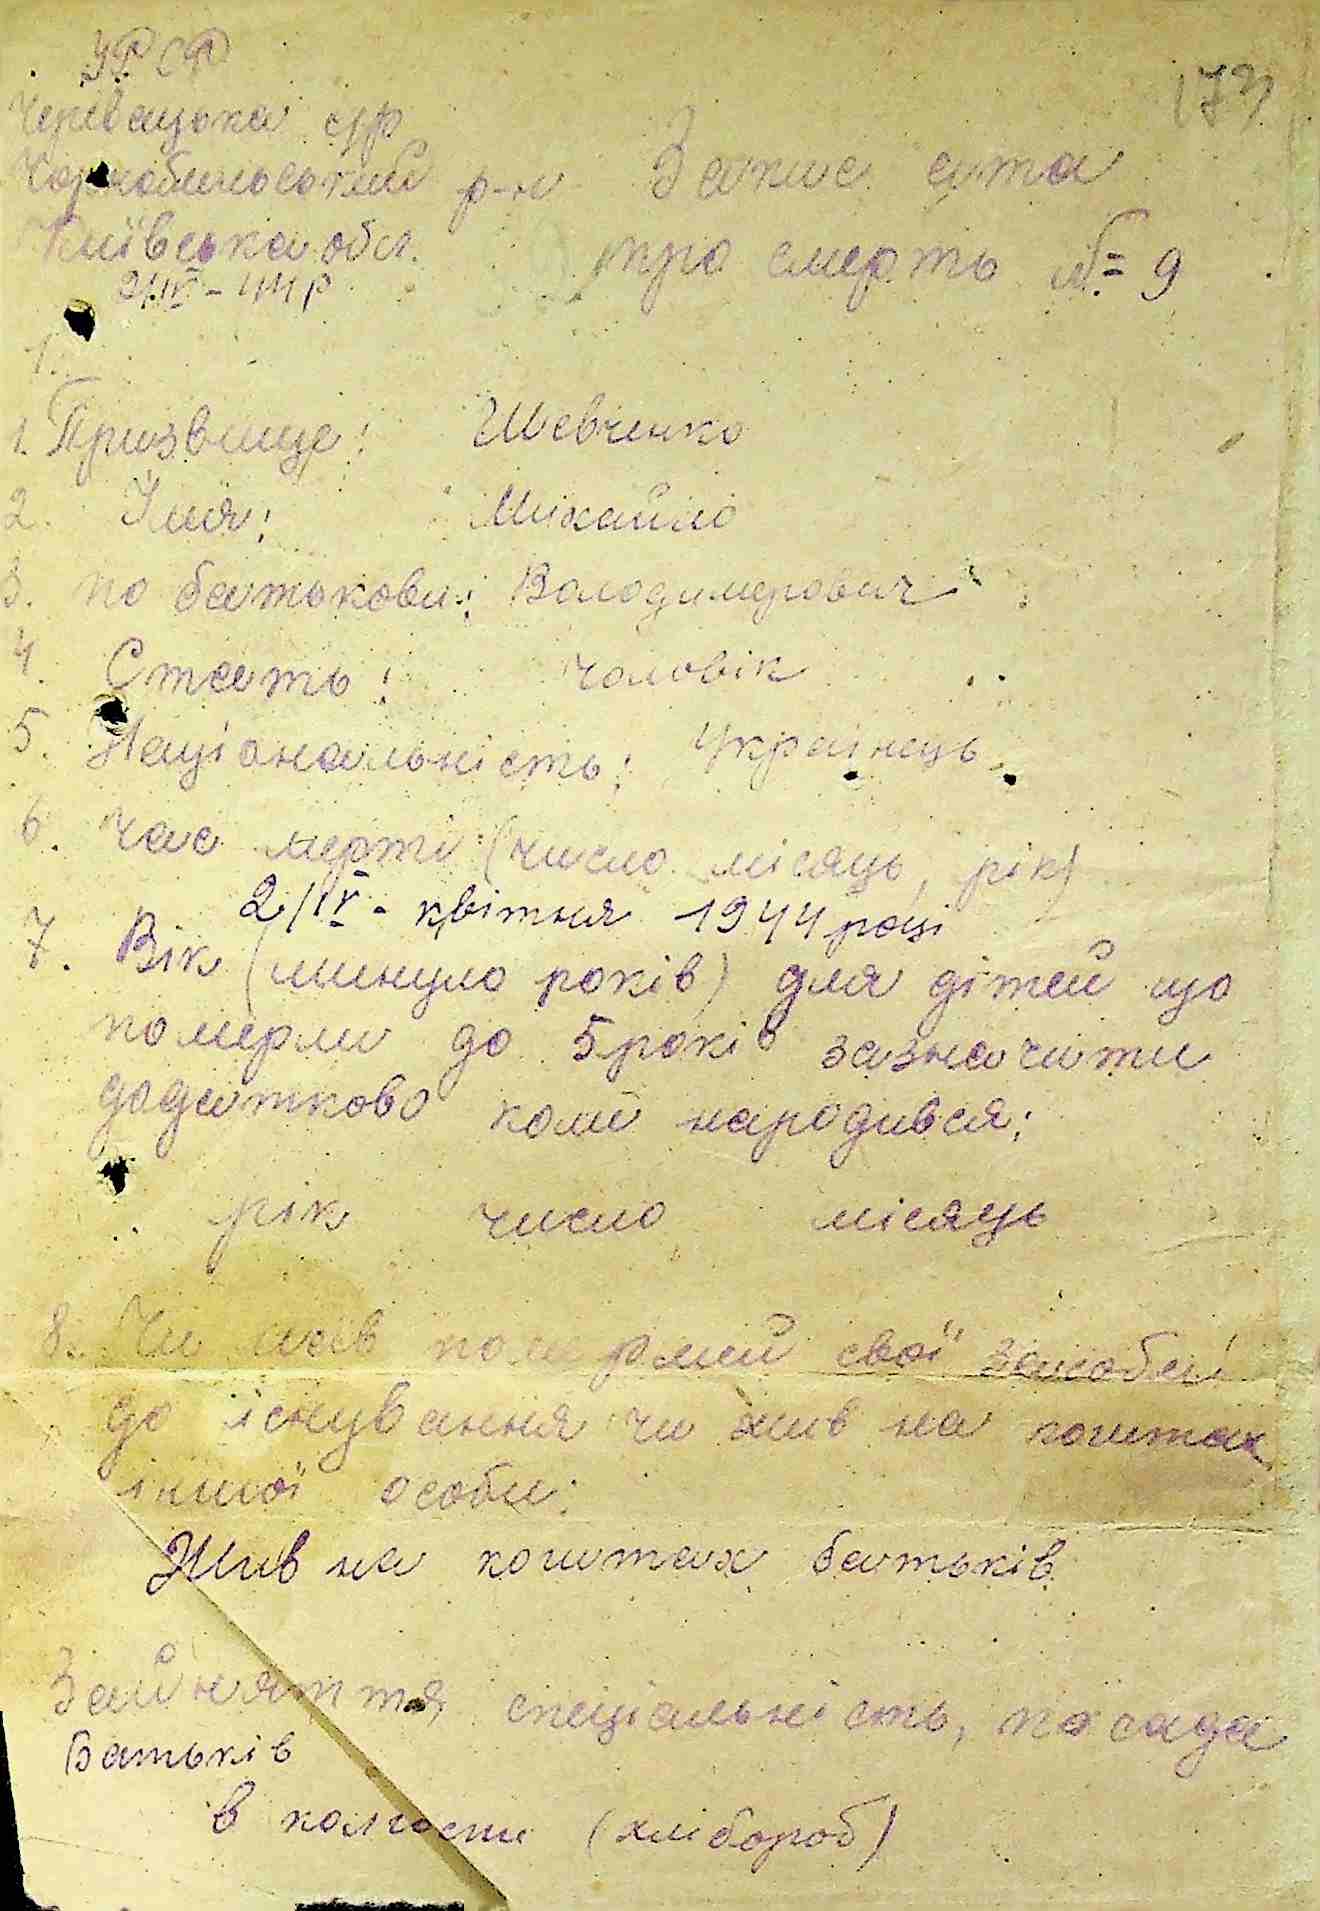 УРСР
173
Черевацька с/р
Чорнобильський р-н Запис акта
Київська обл. про смерть № 9
2/IV - 44 р
1.
1. Призвище: Шевченко
2. Імя: Михайло
3. по батькови: Володимерович
4. Стать: чоловік
5. Національність: Українець
6. Час мерті (число місяць, рік)
2/IV - квітня 1944 році
7. Вік (минуло років) для дітей що
померли до 5 років зазначити
додатково коли народився:
рік число місяць
8. Чи мав померлий свої засоби
до існування чи жив на коштах
іншої особи:
Жив на коштах батьків
Зайняття, спеціальність, посада
батьків
в колгоспи (хлібороб)